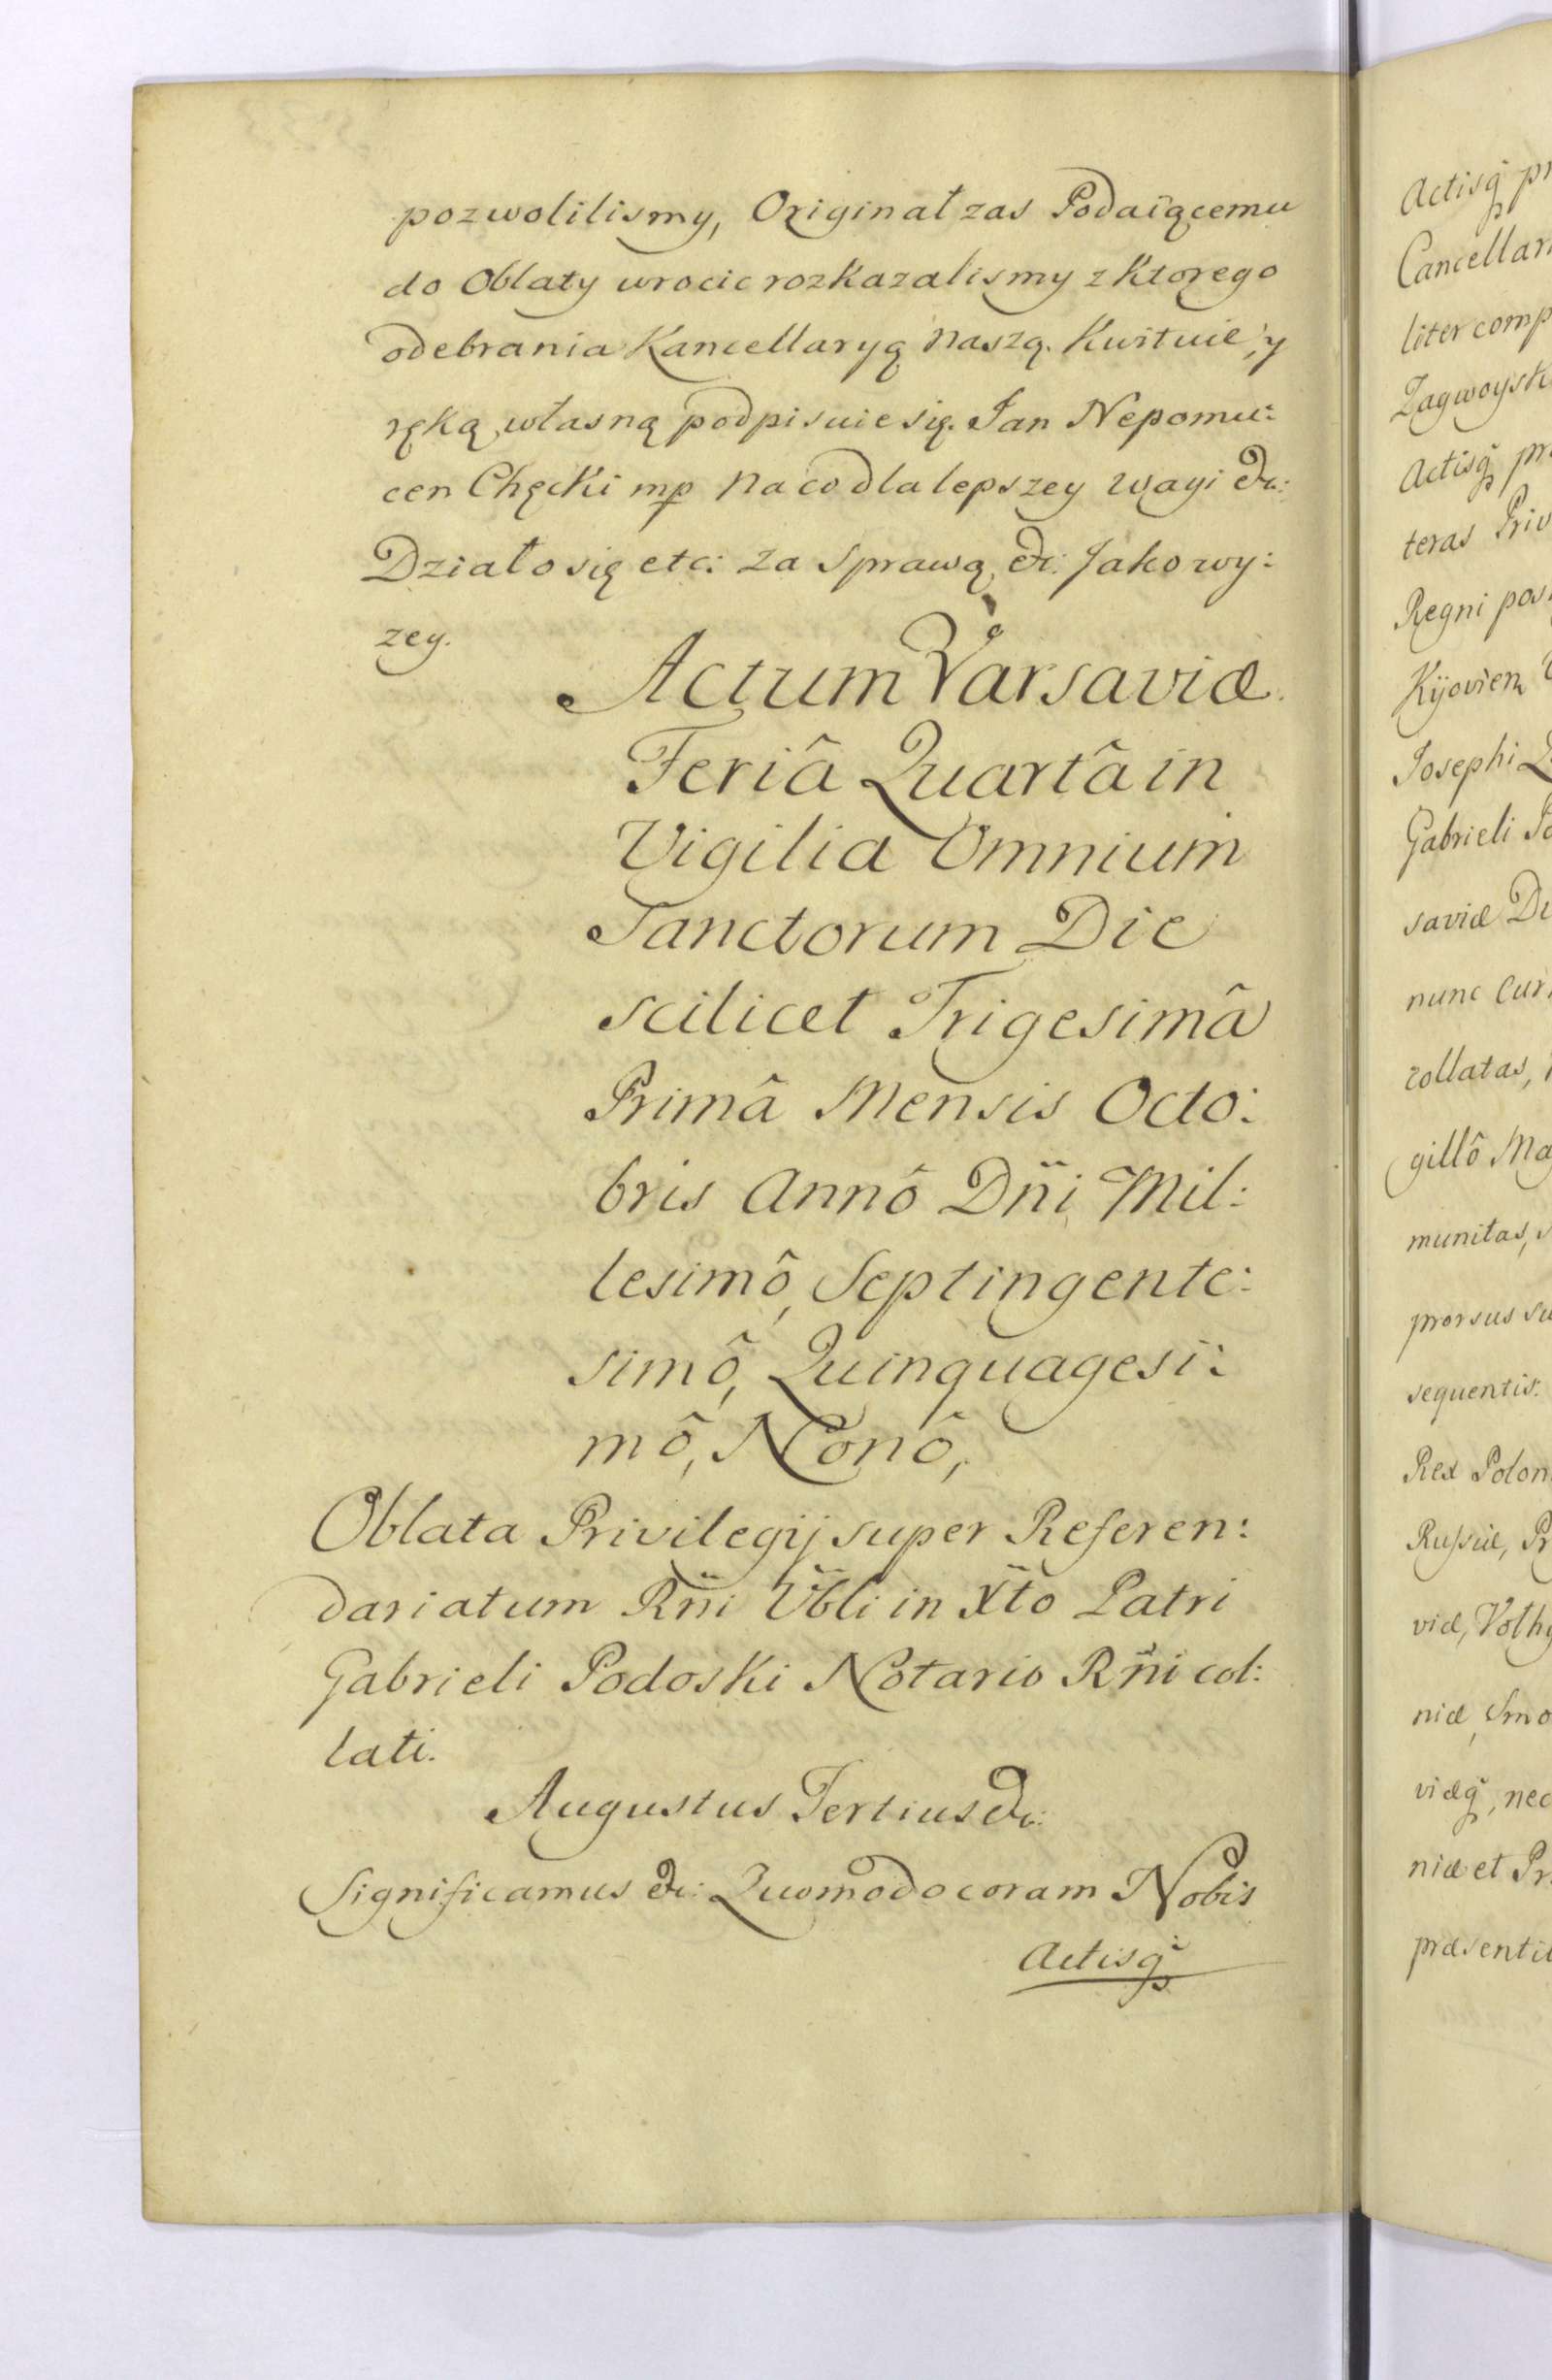 pozwolilismy, Originał zas Podaiącemu
do Oblaty wrocic rozkazalismy z ktorego
odebrania Kancellaryą naszą. Kwituie, y
ręką własną podpisuie się. Jan Nepomu:
cen Chęcki mp Na co dla lepszey wagi &c:
Działo się etc: za sprawą &c: Jako wy:
zey.
Actum Varsaviæ
Feriâ Quartâ in
Vigilia Omnium
Sanctorum Die
scilicet Trigesimâ
Primâ Mensis Octo:
bris Annô Dñi Mil:
lesimô, Septingente:
simô, Quinquagesi:
mô, Nonô,
Oblata Privilegij super Referen:
dariatum Rñi Vbli in Xto Patri
Gabrieli Podoski Notario Rñi col:
lati.
Augustus Tertius &c:
Significamus &c: Quomodo coram Nobis
Actisq
Actisq
Cancellar
liter comp
Zagwoysk
Actisq
teras Priv
Regni pos
Kijovien
Josephi
Gabrieli
saviæ
nunc cur
collatas,
gillô Ma
munitas,
prorsus su
sequentis.
Rex Polon
Russiæ, Pr
viæ, Volhy
niæ, Smo
viæq, nec
niæ et Pr
præsenti